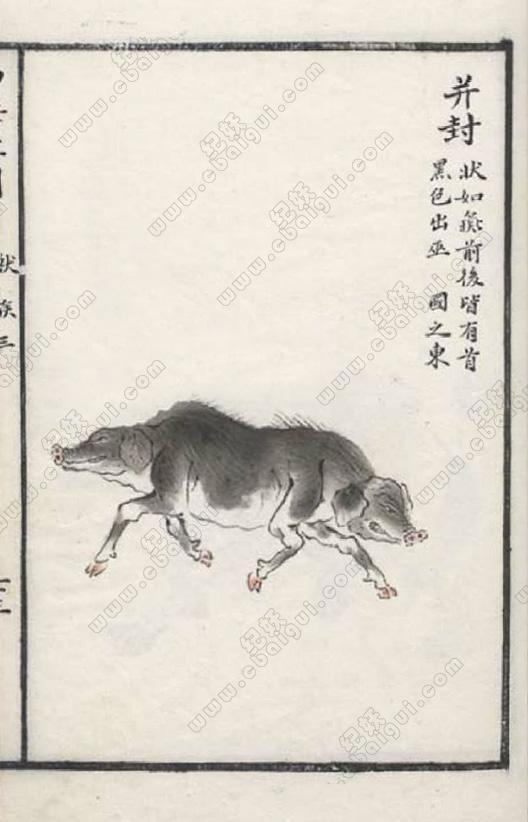 并封
狀如彘前後皆有首
黑色出巫 國之東
獸族三
纪妖
www.cbaigui.com